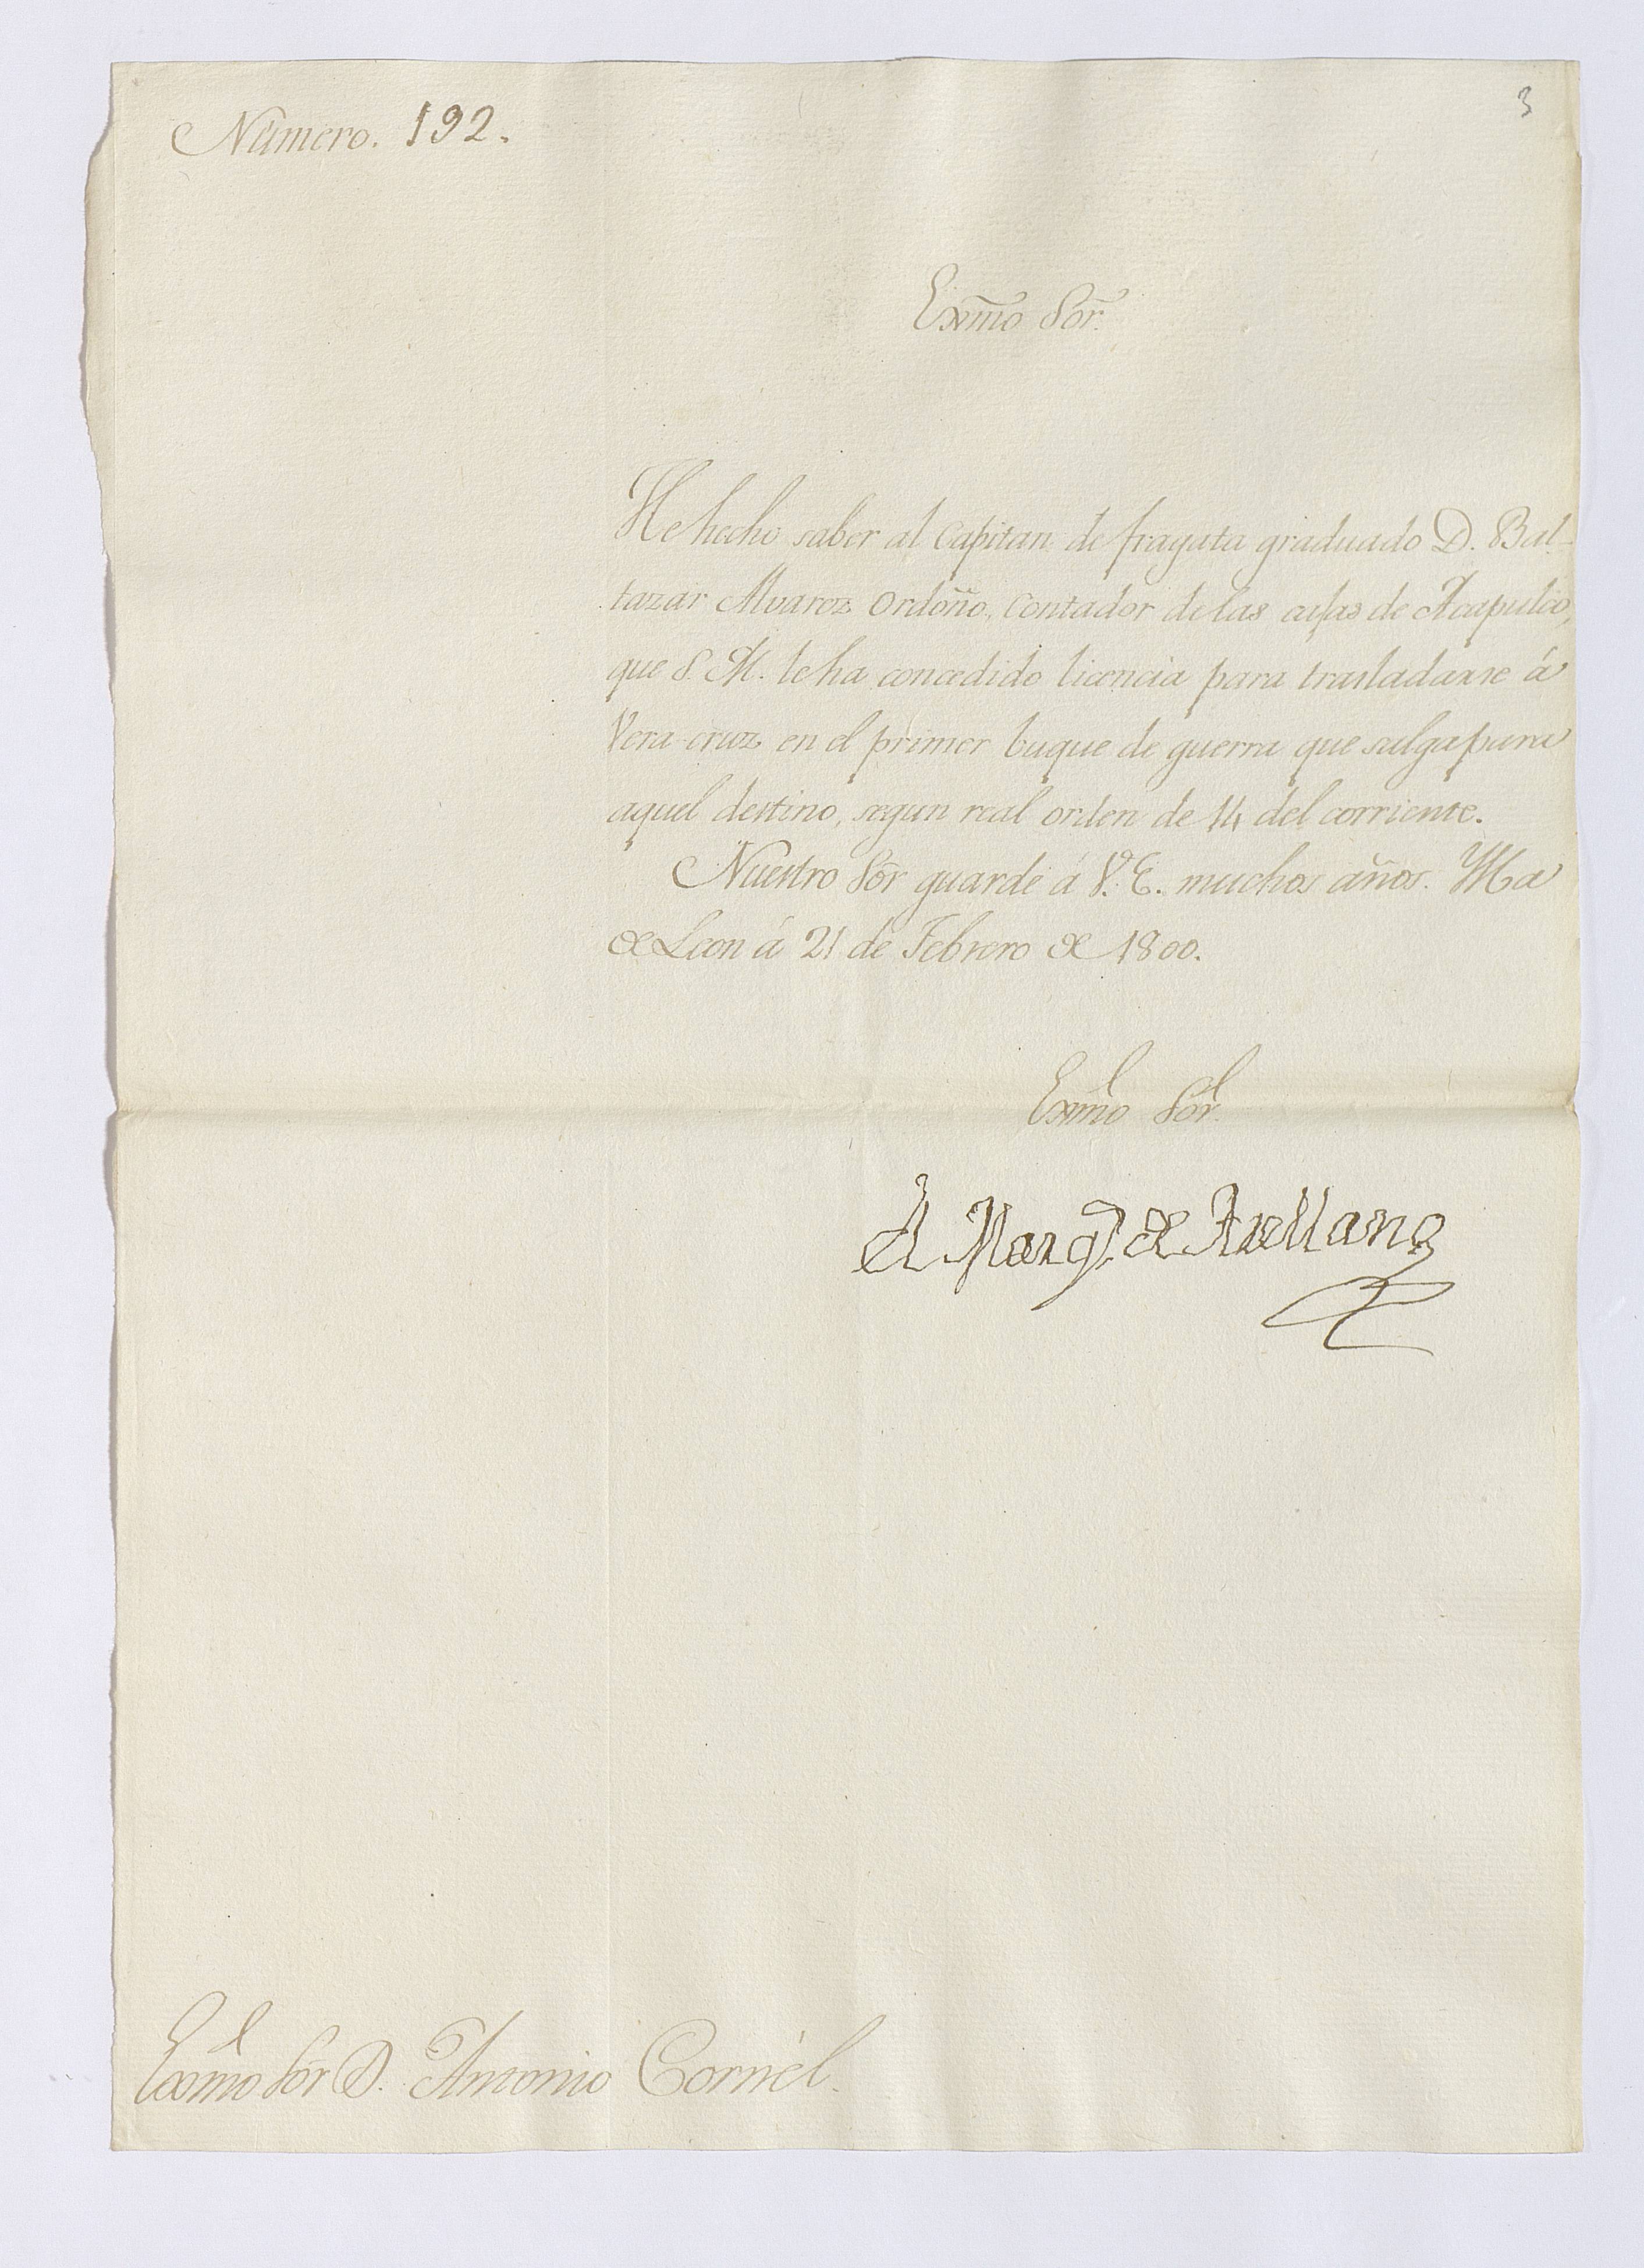 Número. 192.
3
Exmo Sor.
He hecho saber al Capitan de fragata graduado D. Bal-
tazar Alvarez Ordoño, Contador de las caxas de Acapulco,
que S. M. le ha concedido licencia para trasladarse á
Vera-cruz en el primer buque de guerra que salga para
aquel destino, segun real orden de 14 del corriente.
Nuestro Sor guarde á V. E. muchos años. Ysla
de Leon á 21 de Febrero de 1800.
Exmo Sor.
El Marqs. de Arellano
Exmo Sor D. Antonio Cornél.